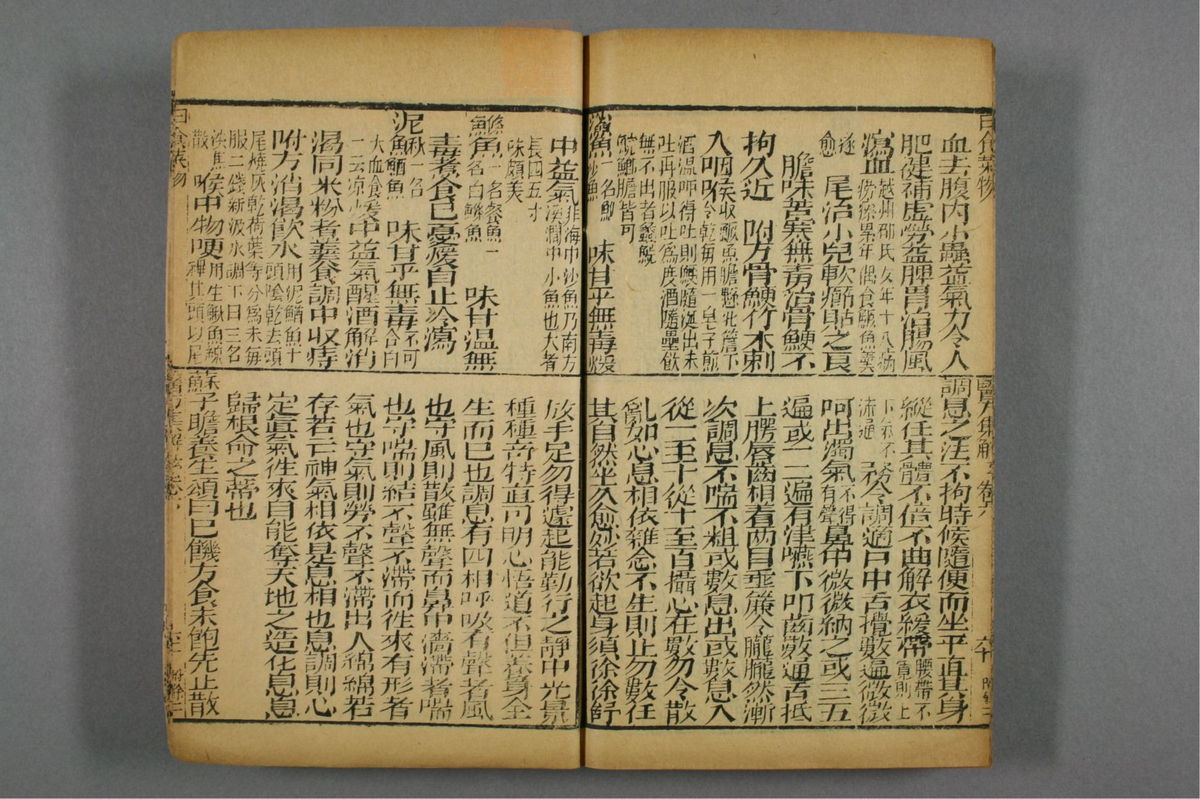 日食菜物
血去腹內小蟲益氣力令人
肥健補虛勞益脾胃治腸風
瀉血越州邵氏女年十八病勞瘵累年偶食鰻魚羹
遂愈 尾治小兒軟癤貼之良
膽味苦寒無毒治骨鯁不
拘久近 附方骨鯁竹木刺
入咽喉收鱖魚膽懸北簷下令乾每用一皂子煎
酒溫呷得吐則鯁隨涎出未吐再服以吐為度酒隨量飲
無不出者蠡鯇鯽膽皆可
鯊魚一名鮀沙魚 味甘平無毒煖
中益氣非海中沙魚乃南方溪澗中小魚也大者
長四五寸味頗美
鰷魚一名䱗魚一名白鰷魚 味甘溫無
毒煮食已憂煖胃止冷瀉
泥鰍一名鰌魚 味甘平無毒不可合白
犬血食煖中益氣醒酒解消
渴同米粉煮羹食調中收痔
附方消渴飲水用泥鰌魚十頭陰乾去頭
尾燒灰乾荷葉等分為末每服二錢新汲水調下日三名
散 喉中物哽用生鰍魚線縛其頭以尾
日食菜物
醫方集解 卷六
調息之法不拘時候隨便而坐平直其身
縱任其體不倚不曲解衣緩帶腰帶不寬則上
下氣不流通 務令調適口中舌攪數遍微微
呵出濁氣不得有聲鼻中微微納之或三五
遍或一二遍有津嚥下叩齒數通舌抵
上腭唇齒相着兩目垂簾令朧朧然漸
次調息不喘不粗或數息出或數息入
從一至十從十至百攝心在數勿令散
亂如心息相依雜念不生則止勿數任
其自然坐久愈妙若欲起身須徐徐舒
放手足勿得遽起能勤行之靜中光景
種種奇特直可明心悟道不但養身全
生而已也調息有四相呼吸有聲者風
也守風則散雖無聲而鼻中濇滯者喘
也守喘則結不聲不滯而徃來有形者
氣也守氣則勞不聲不滯出入綿綿若
存若亡神氣相依是息相也息調則心
定真氣徃來自能奪天地之造化息息
歸根命之蒂也
蘇子瞻養生頌曰已饑方食未飽先止散